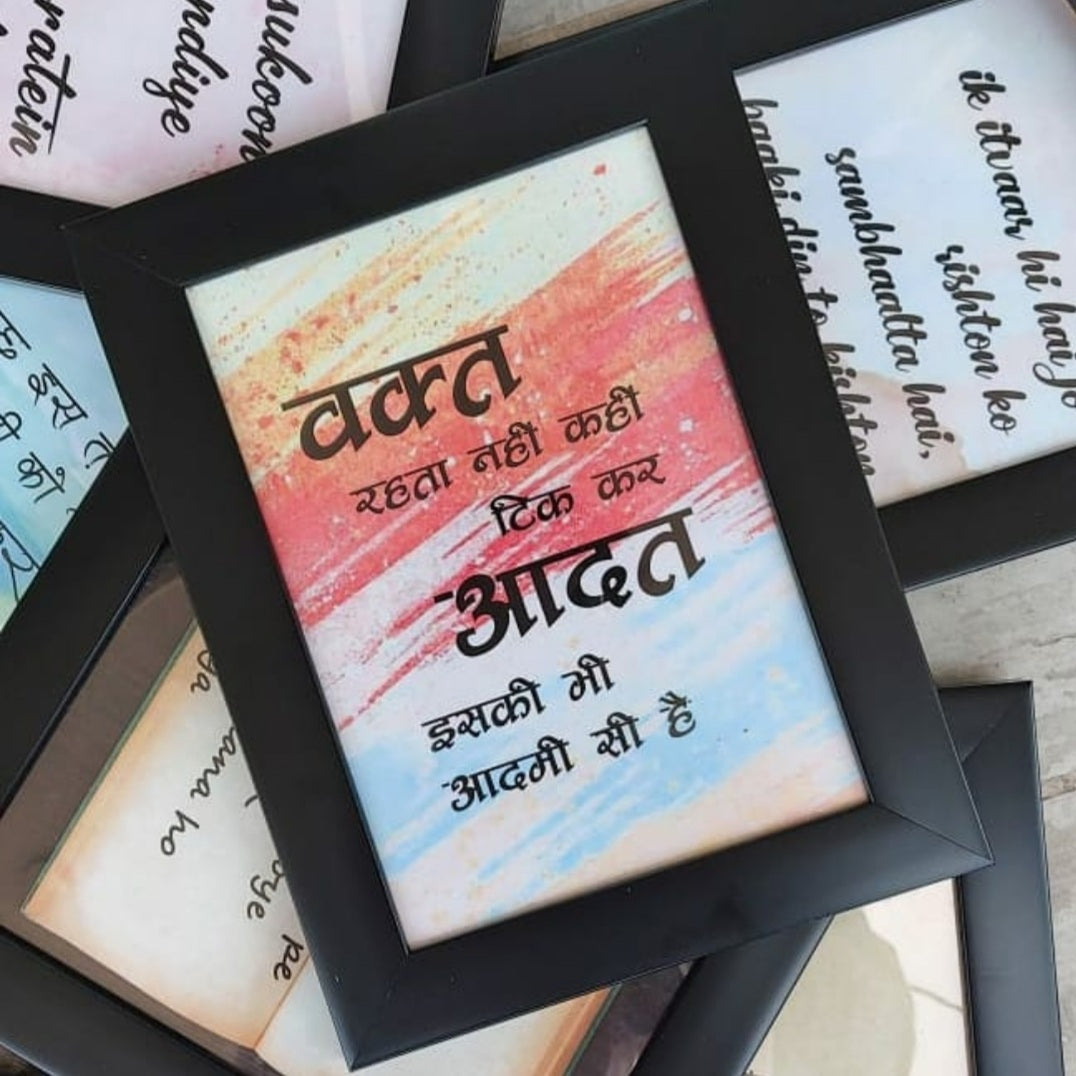 वक्त
रहता नहीं कहीं
टिक कर
आदत
इसकी भी
आदमी सी है
ik itvaar hi hai jo
rishton ko
sambhaalta hai,
baaki din to kishton
sukoon
ndiye
ratein
इस
ho
pe